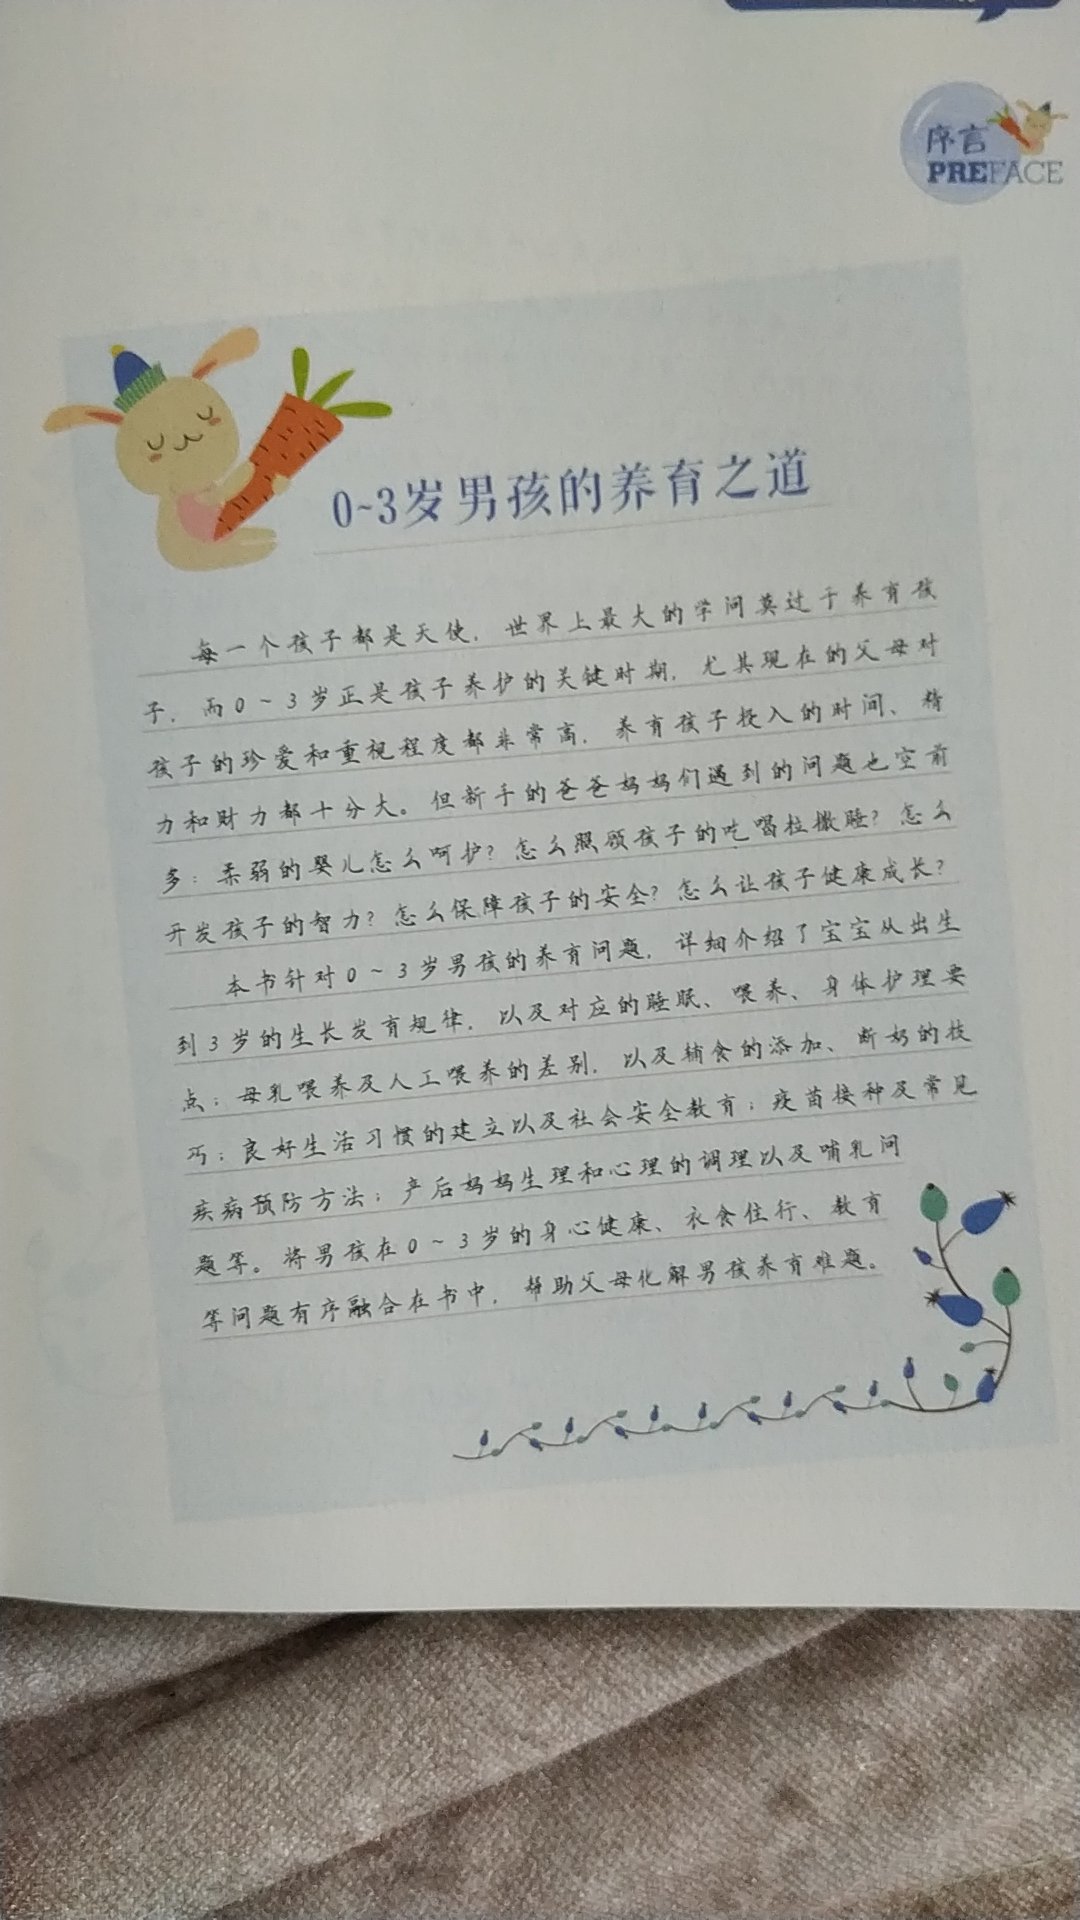 序言
PREFACE
0~3岁男孩的养育之道
每一个孩子都是天使，世界上最大的学问莫过于养育孩
子，而0～3岁正是孩子养护的关键时期，尤其现在的父母对
孩子的珍爱和重视程度都非常高，养育孩子投入的时间、精
力和财力都十分大。但新手的爸爸妈妈们遇到的问题也空前
多：柔弱的婴儿怎么呵护？怎么照顾孩子的吃喝拉撒睡？怎么
开发孩子的智力？怎么保障孩子的安全？怎么让孩子健康成长？
本书针对0～3岁男孩的养育问题，详细介绍了宝宝从出生
到3岁的生长发育规律，以及对应的睡眠、喂养、身体护理要
点；母乳喂养及人工喂养的差别，以及辅食的添加、断奶的技
巧；良好生活习惯的建立以及社会安全教育；疫苗接种及常见
疾病预防方法；产后妈妈生理和心理的调理以及哺乳问
题等。将男孩在0～3岁的身心健康、衣食住行、教育
等问题有序融合在书中，帮助父母化解男孩养育难题。